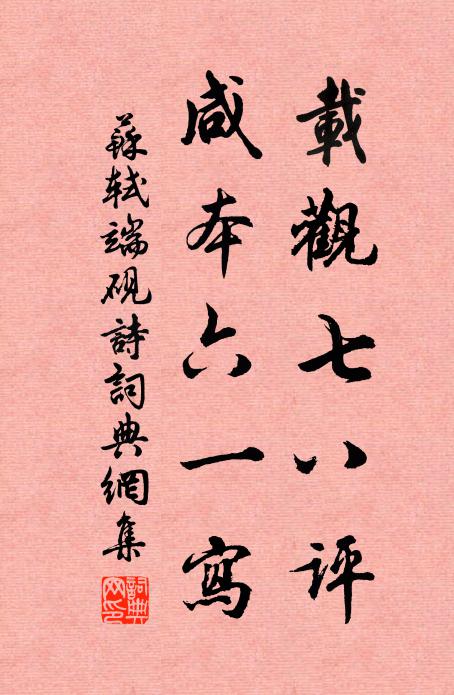 載觀七八評
咸本六一寫
蘇軾端硯詩詞典網集
詞典
网印